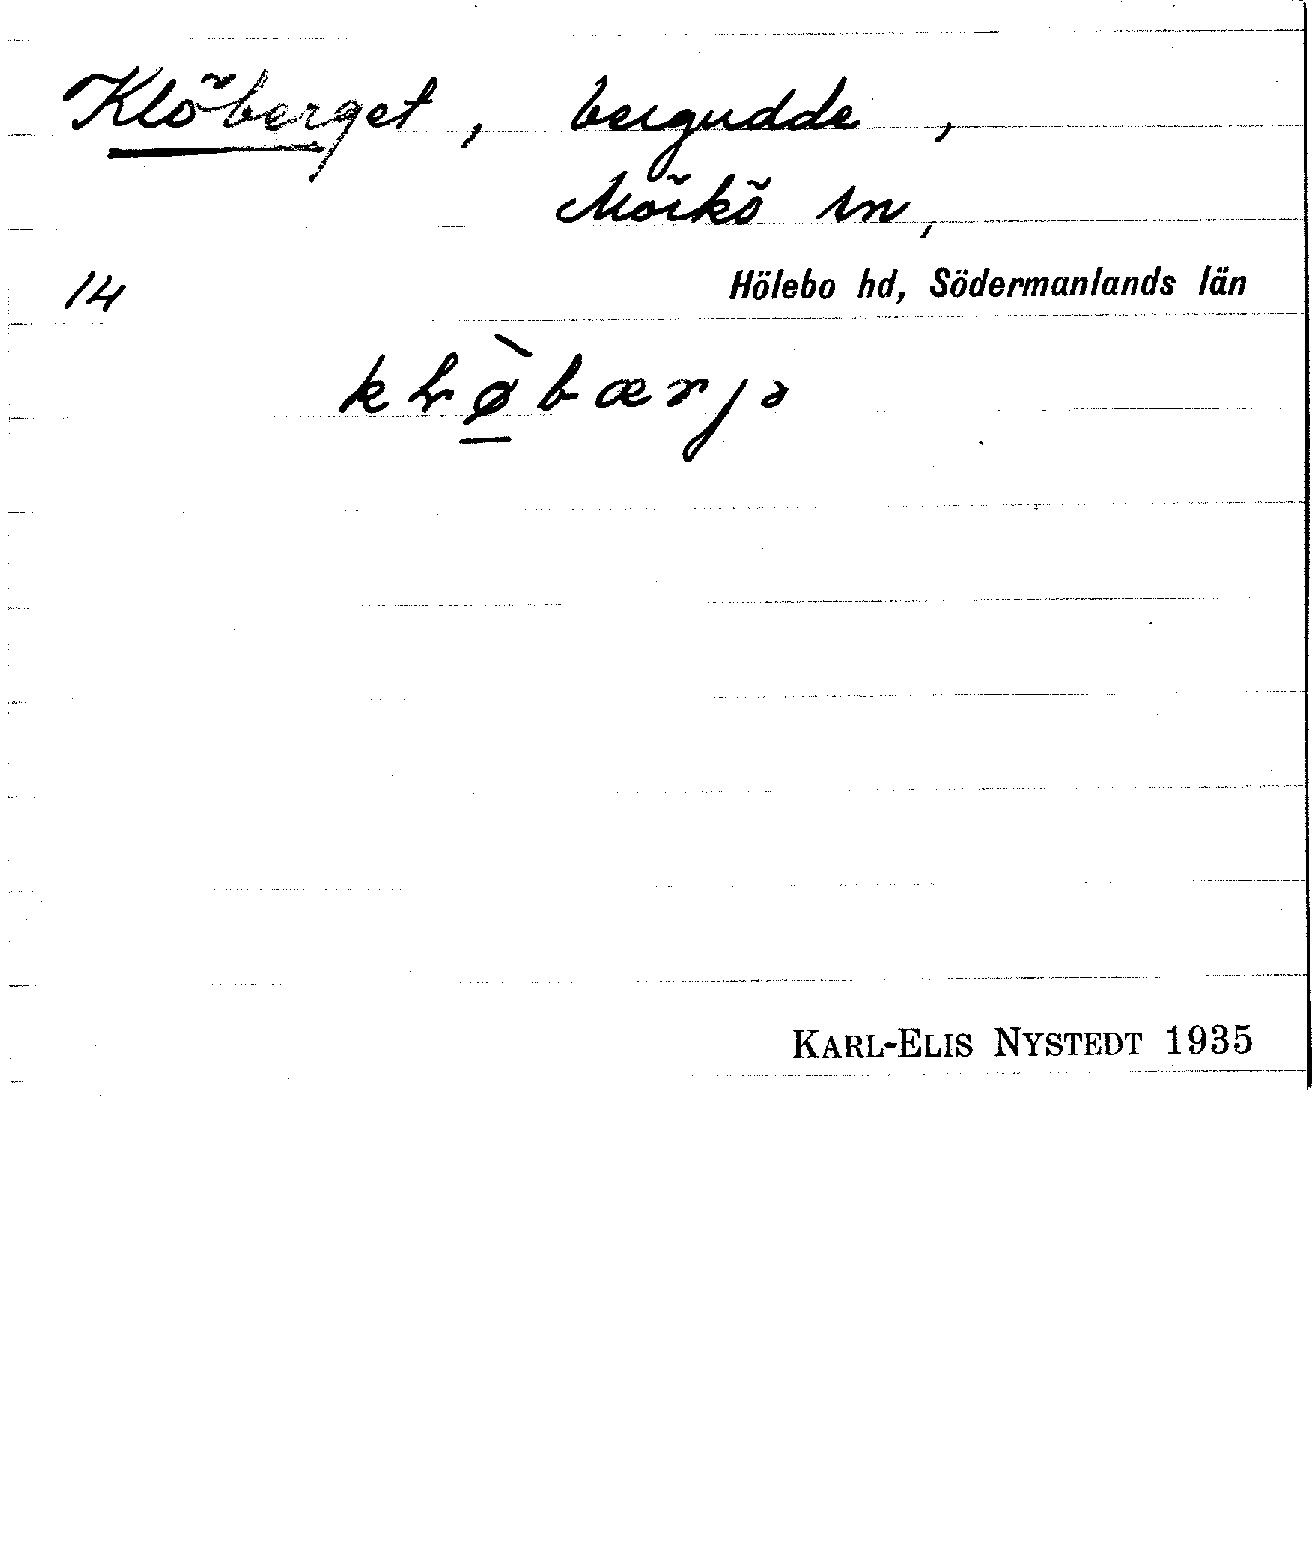 Klöberget, bergudde,
Mörkö sn,
14 Hölebo hd, Södermanlands län
KARL-ELIS NYSTEDT 1935